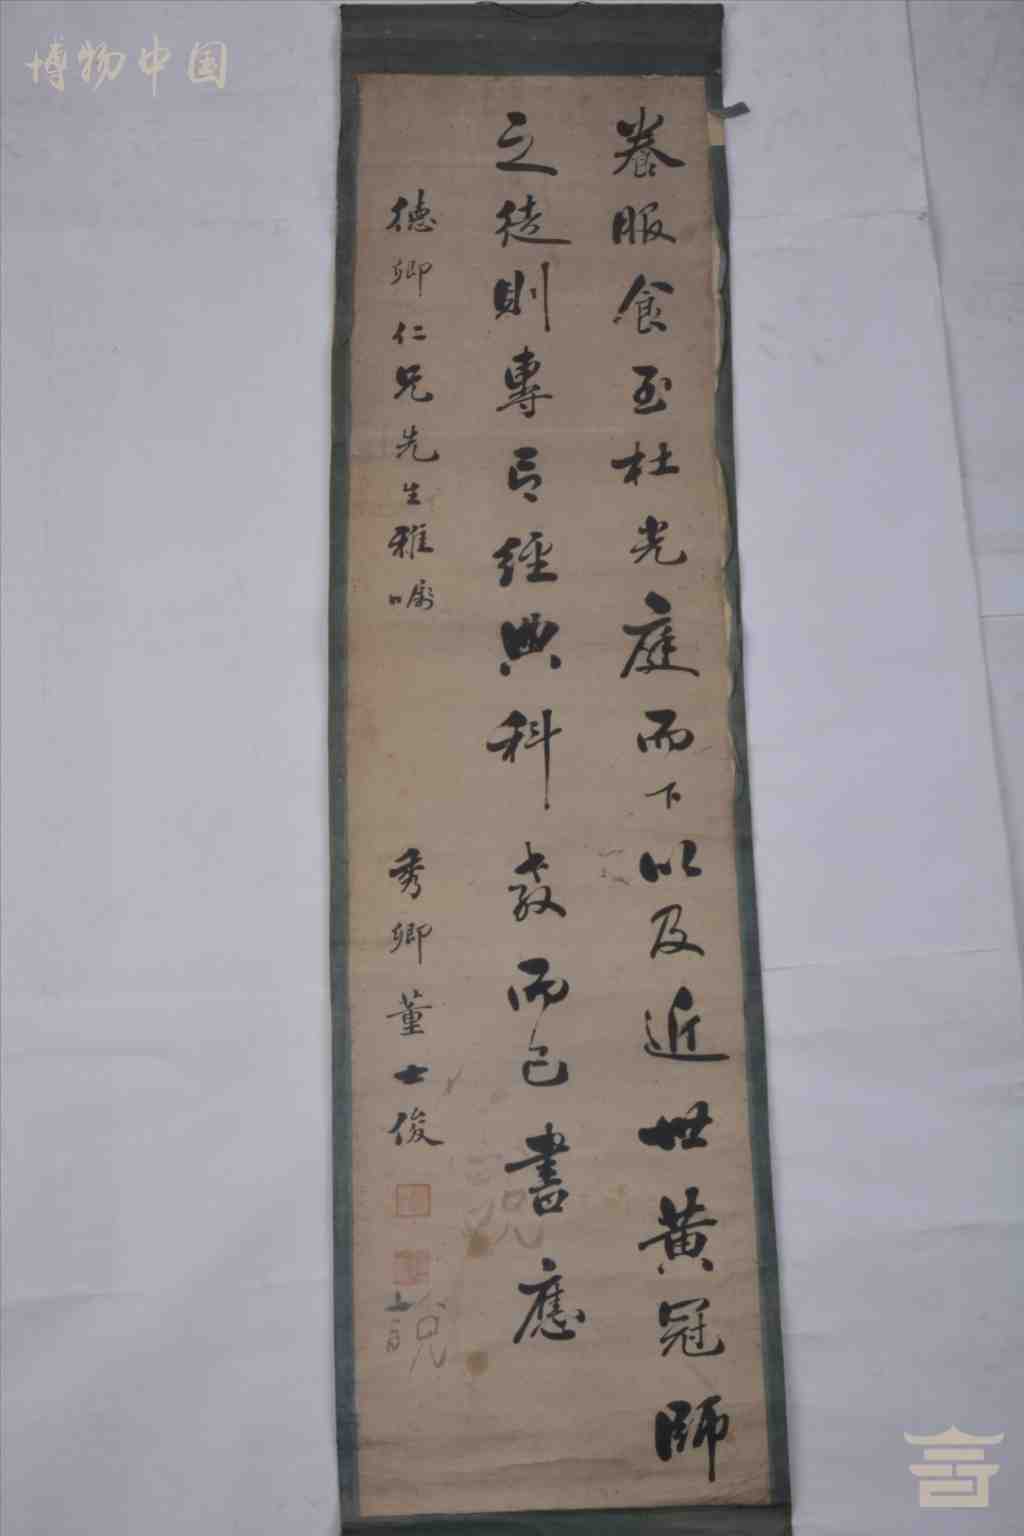 養服食至杜光庭而下以及近世黃冠師
之徒則專言經典科教而已書應
德卿仁兄先生雅囑
秀卿董士俊
博物中国